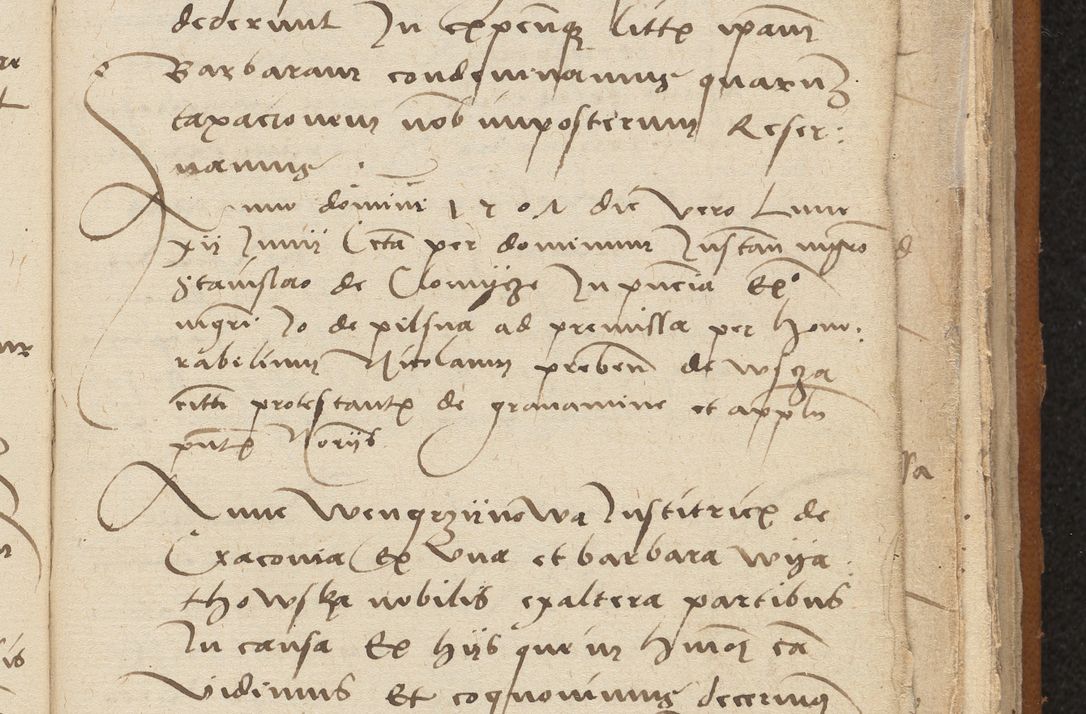 dederunt In expenẜ litte ipam
Barbaram condemnamus quarum
taxacionem nob imposterum Reser:
vamus .
Anno domini 1501 die vero Lune
xij Junij Lcta per dominum Justan mgro
Stanislao de Clomijcze In pncia Exo
mgri Jo de pilsna ad premissa per hono:
rabilem Nicolaum preben de wszga
citti protestante de gravamine et appln
pnte Noriis
Anne Wengrzijnowa Institrice de
Cracovia Ex una et barbara wija:
thowska nobilis exaltera partibus
In causa Ex hijs que in hmoi ca
vidimus Et cognovimus decerimus